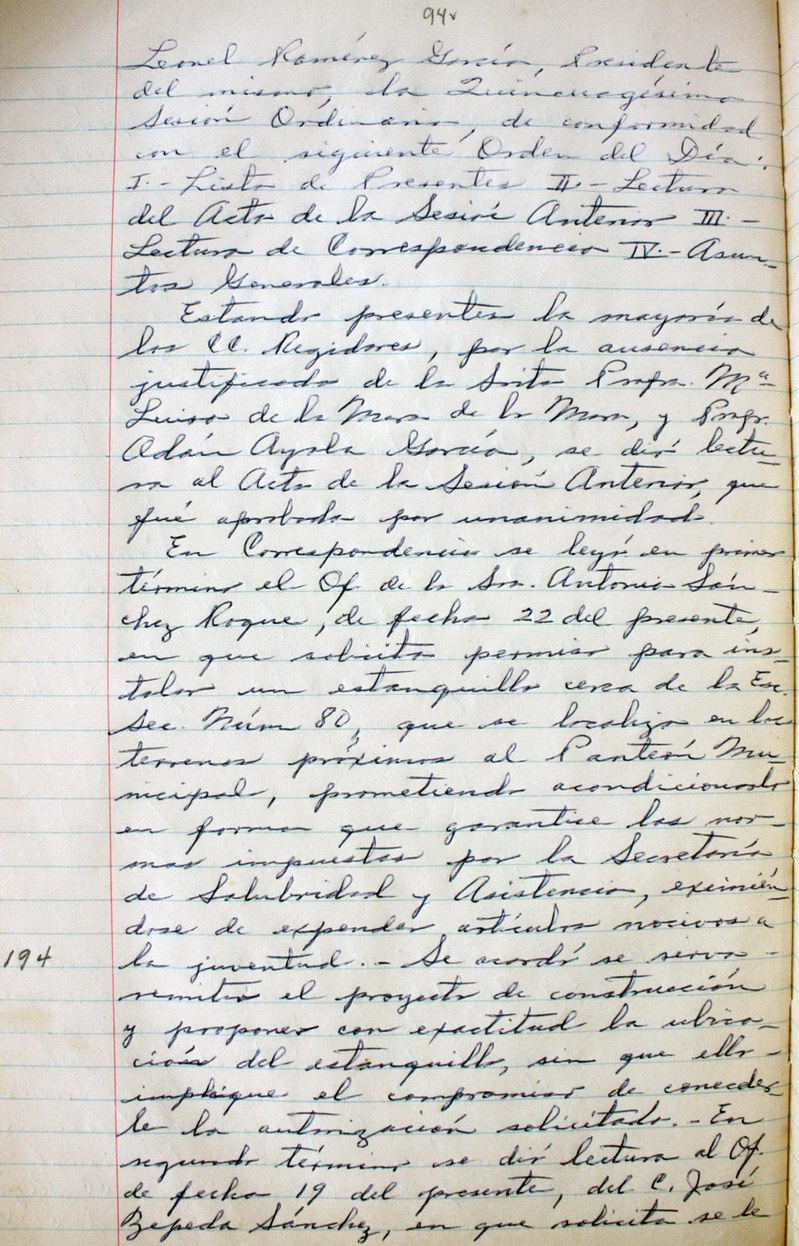 94v
Leonel Ramírez García, Presidente
del mismo, la Quincuagésima
Sesión Ordinaria, de conformidad
con el siguiente Orden del Día:
I.- Lista de Presentes II.- Lectura
del Acta de la Sesión Anterior III.-
Lectura de Correspondencia IV.- Asun-
tos Generales.
Estando presentes la mayoría de
los CC. Regidores, por la ausencia
justificada de la Srita Profra. Mª
Luisa de la Mora de la Mora, y Profr.
Adán Ayala García, se dió lectu-
ra al Acta de la Sesión Anterior, que
fué aprobada por unanimidad.
En Correspondencia se leyó en primer
término el Of. de la Sra. Antonia Sán-
chez Roque, de fecha 22 del presente,
en que solicita permiso para ins-
talar un estanquillo cerca de la Esc.
Sec. Núm 80, que se localiza en los
terrenos próximos al Panteón Mu-
nicipal, prometiendo acondicionarlo
en forma que garantice las nor-
mas impuestas por la Secretaría
de Salubridad y Asistencia, eximién-
dose de expender artículos nocivos a
194 la juventud.- Se acordó se sirva
remitir el proyecto de construcción
y proponer con exactitud la ubica-
ción del estanquillo, sin que ello
implique el compromiso de conceder-
le la autorización solicitada.- En
segundo término se dió lectura al Of.
de fecha 19 del presente, del C. José
Zepeda Sánchez, en que solicita se le